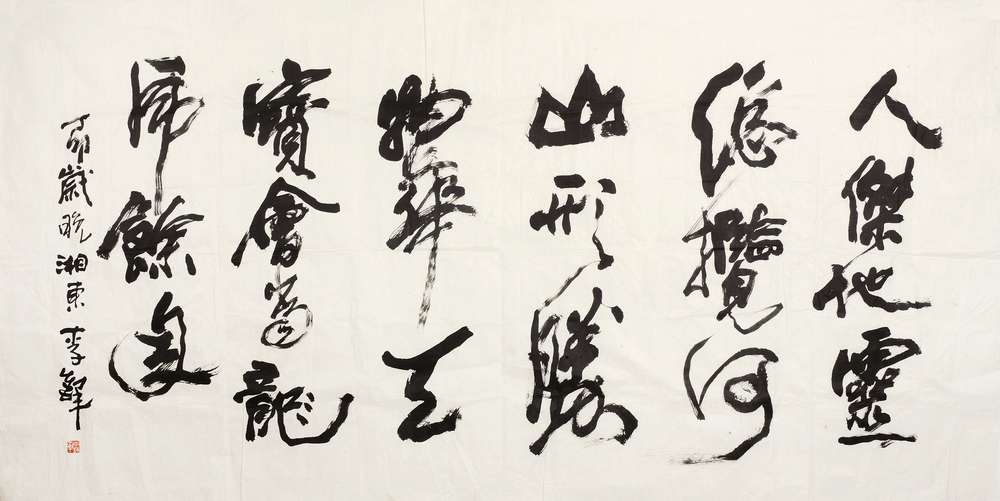 人傑地靈
總攬河
山形勝
物華天
寶會當龍
虎餘
丁卯歲晚湘東李鐸